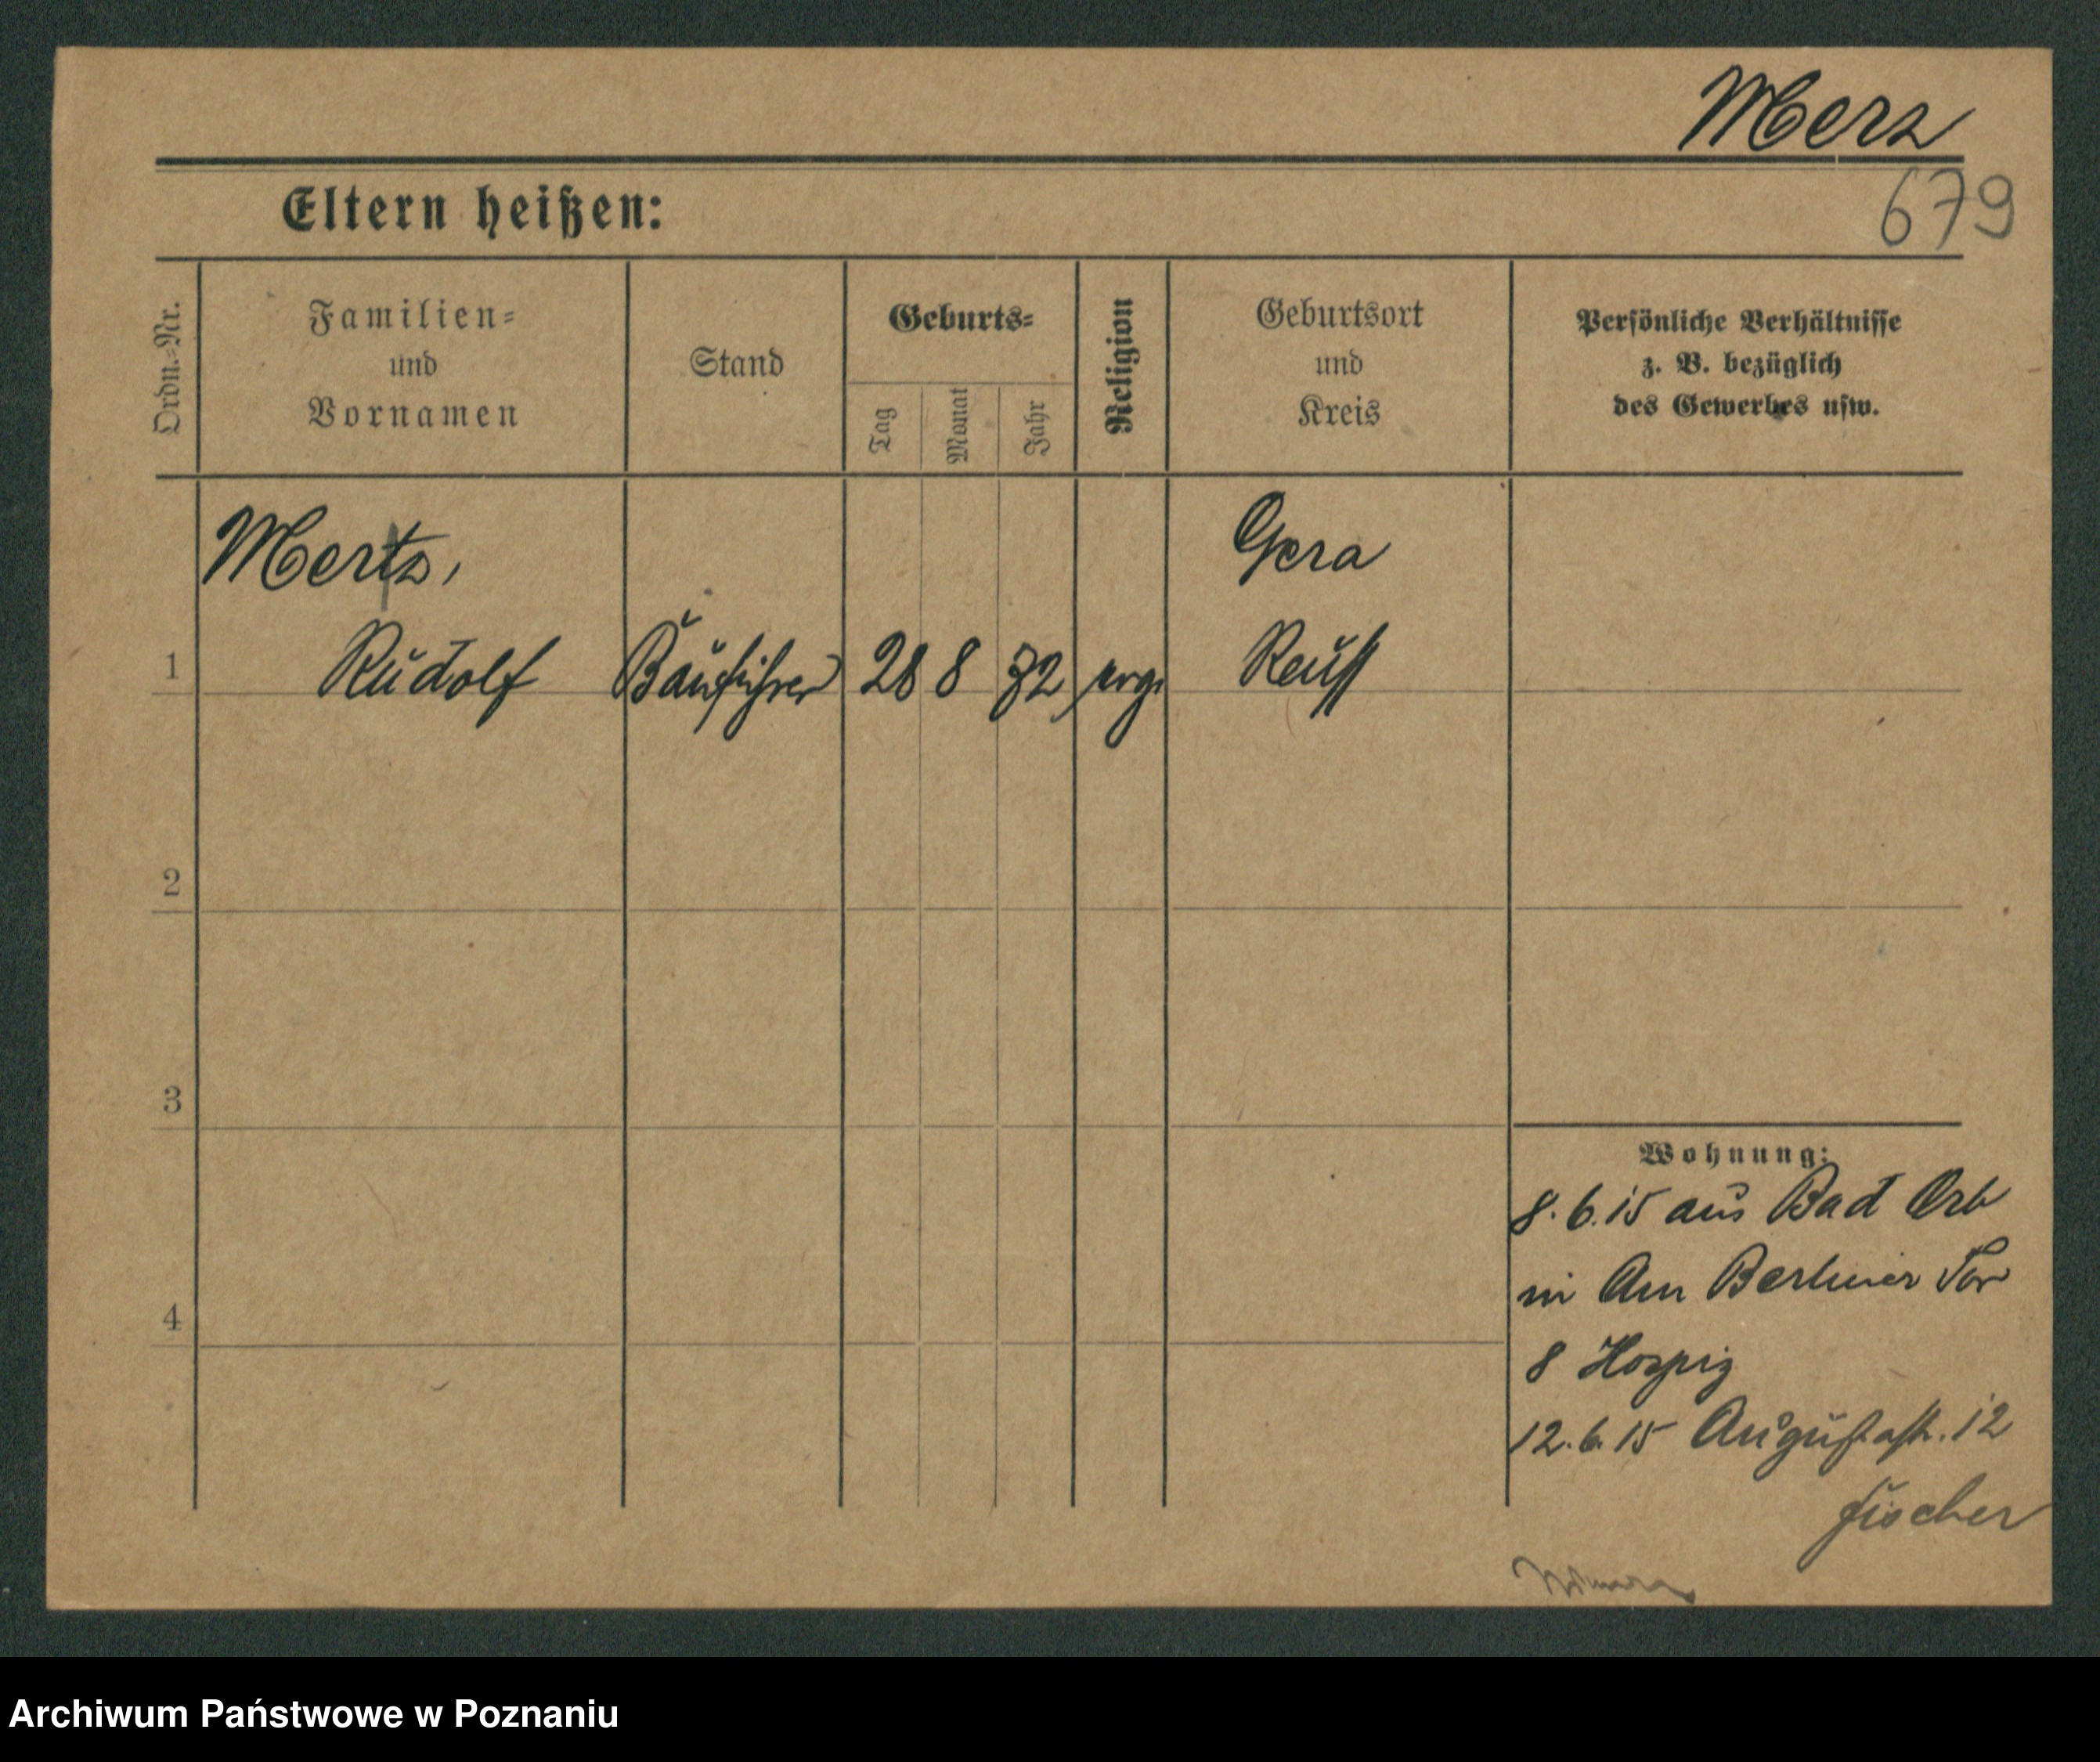 Merz
679
Eltern heißen:
Ordn.-Nr.
Familien-
und
Vornamen
Stand
Geburts-
Tag
Monat
Jahr
Religion
Geburtsort
und
Kreis
Persönliche Verhältnisse
z. B. bezüglich
des Gewerbes usw.
Mertz,
Gera
1 Rudolf Bauführer 28 8 82 evgl Reuß
2
3
4
Wohnung:
8.6.15 aus Bad Orb
in Am Berliner Tor
8 Hospiz
12.6.15 Augustastr. 12
Fischer
Archiwum Państwowe w Poznaniu